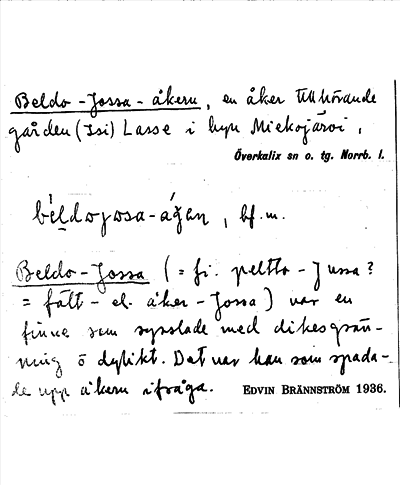 Beldo-Jossa-åkern, en åker tillhörande
gården (Isi) Lasse i byn Miekojärvi,
Överkalix sn o. tg. Norrb. l.
béldojosa-ágan, bf. m.
Beldo-Jossa (= fi. peltto-Jussa?
= fält- el. åker-Jossa) var en
finne som sysslade med dikesgräv-
ning o dylikt. Det var han som spada-
de upp åkern ifråga.
EDVIN BRÄNNSTRÖM 1936.